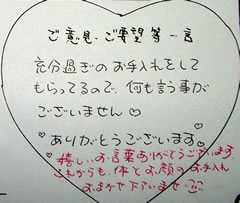 ご意見・ご要望等一言
充分過ぎのお手入れをして
もらってるので、何も言う事が
ございません♡
♡ありがとうございます♡
嬉しいお言葉ありがとうございます
これからも、体とお顔のお手入れ
おまかせ下さいませ